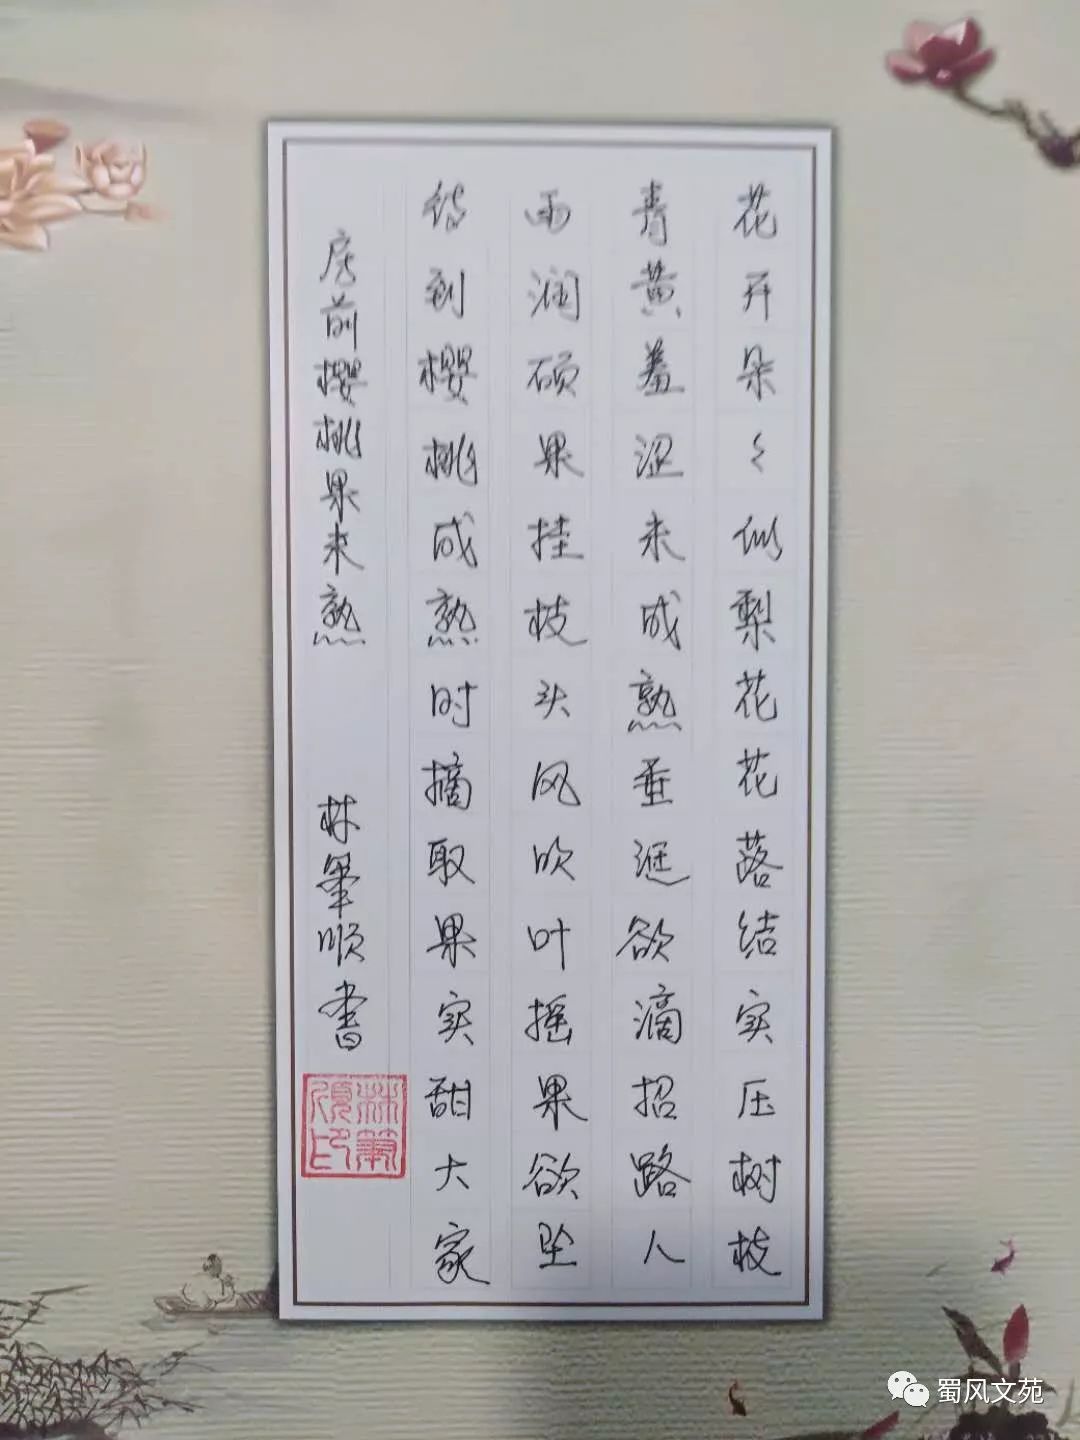 花开朵々似梨花花落结实压树枝
青黄羞涩未成熟垂涎欲滴招路人
雨润硕果挂枝头风吹叶摇果欲坠
待到樱桃成熟时摘取果实甜大家
房前樱桃果未熟 林筆顺書
林筆順印
蜀风文苑